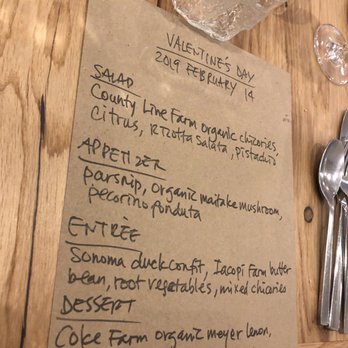 VALENTINE'S DAY
2019 FEBRUARY 14
SALAD
County Line Farm organic chicories,
citrus, ricotta salata, pistachio
APPETIZER
parsnip, organic maitake mushroom,
pecorino fonduta
ENTRÈE
Sonoma duck confit, Iacopi Farm butter
bean, root vegetables, mixed chicories
DESSERT
Coke Farm organic meyer lemon,